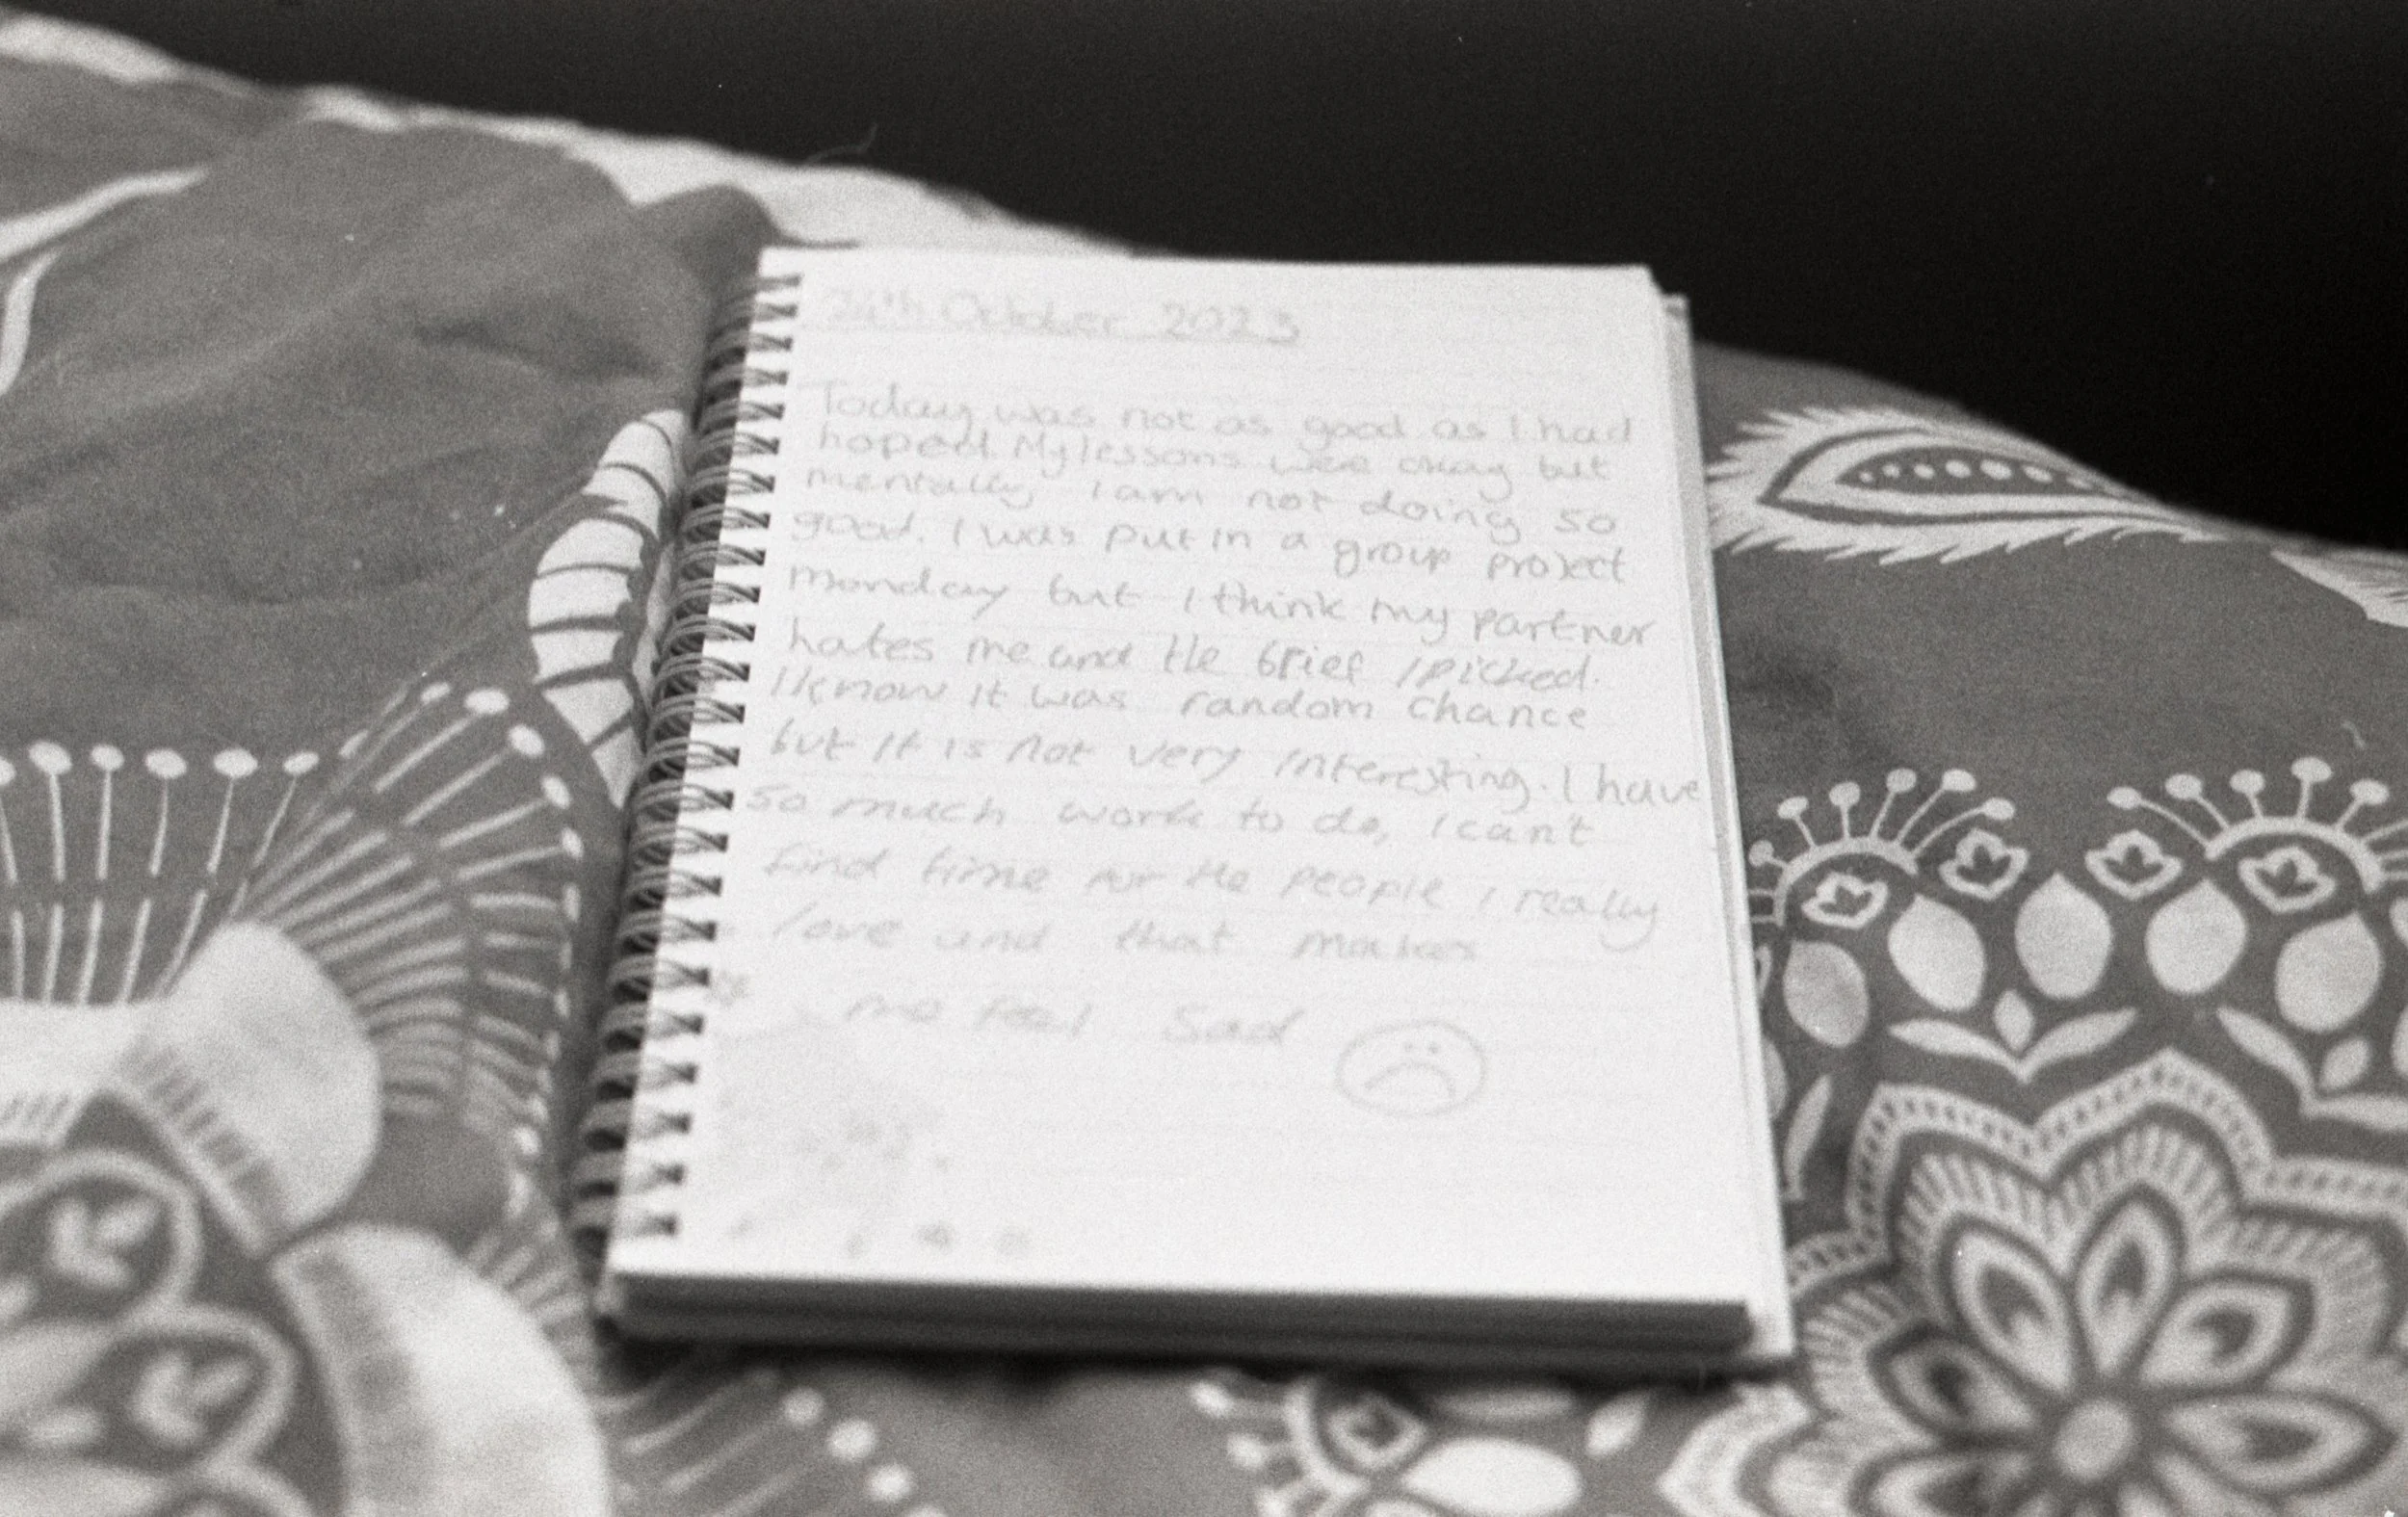 24th October 2023
Today was not as good as I had
hoped. My lessons were okay but
mentally I am not doing so
good. I was put in a group project
monday but I think my partner
hates me and the brief I picked.
I know it was random chance
but it is not very interesting. I have
so much work to do, I can't
find time for the people I really
love and that makes
me feel sad